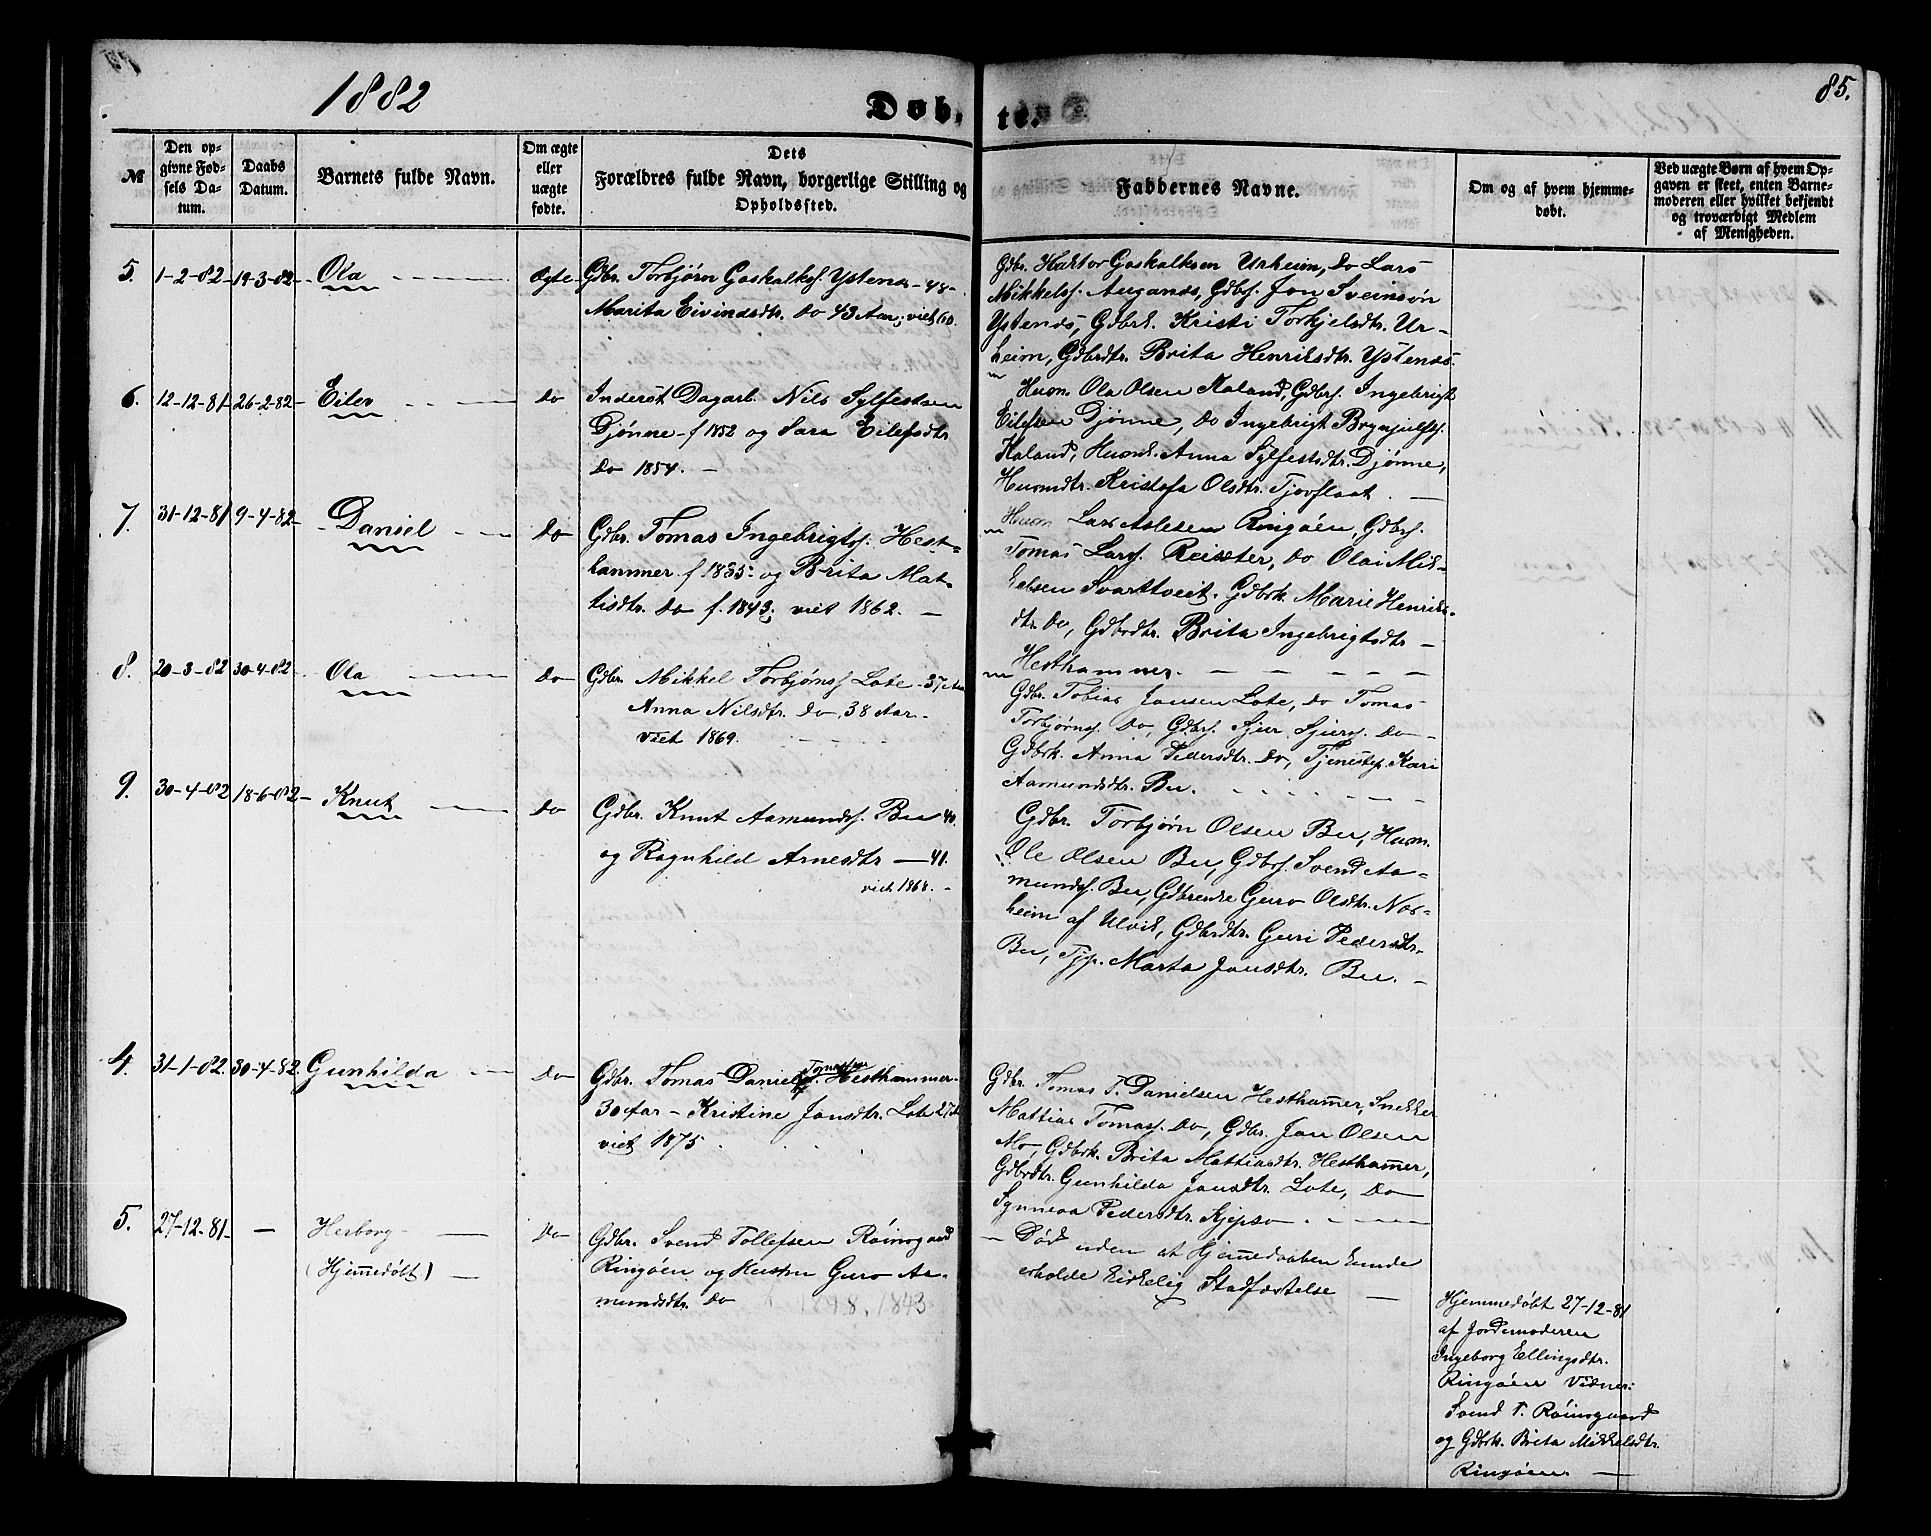 1882
Døb-
te.
85.
№
Den op-
givne Fød-
sels Da-
tum.
Daabs
Datum.
Barnets fulde Navn.
Om ægte
eller
uægte
fødte.
Dets
Forældres fulde Navn, borgerlige Stilling og
Opholdssted.
Faddernes Navne.
Om og af hvem hjemme-
døbt.
Ved uægte Børn af hvem Op-
gaven er skeet, enten Barne-
moderen eller hvilket bekjendt
og troværdigt Medlem
af Menigheden.
5. 1-2-82 19-3-82 Ola Ægte
Gdbr. Torbjørn Gaskalksf. Ystenæs - 48 -
Marita Eivindsdtr. Do 43 Aar, viet 60.
Gdbr. Haktor Gaskalksen Urheim, Do Lars
Mikkelsf. Augands, Gdbsf. Jon Sveinsøn
Ystenæs, Gdbrk. Kristi Torkjelsdtr. Ur-
heim, Gdbrdtr. Brita Henriksdtr. Ystenæs
6. 12-12-81 26-2-82 Eilev Do
Inderst Dagarb. Nils Sylfestsen
Djønne - f 1852 og Sara Eilefsdtr
Do 1854. -
Husm. Ola Olsen Kaland, Gdbrsf. Ingebrigt
Eilefsen Djønne, Do Ingebrigt Brynjulfsf.
Kaland, Husmk. Anna Sylfestsdtr. Djønne,
Husmdtr. Kristofa Olsdtr. Tjovflaat. -
7. 31-12-81 9-4-82 Daniel Do
Gdbr. Tomas Ingebrigtsf. Hest-
hammer f 1835 og Brita Mat-
tisdtr. Do f. 1843, viet 1862. -
Husm Lars Aslesen Ringøen, Gdbsf.
Tomas Larsf. Reisæter, Do Olai Mik-
kelsen Svarttveit. Gdbrk. Marie Henriks-
dtr. Do, Gdbrdtr. Brita Ingebrigtsdtr -
Hesthammer.
8. 20-3-82 30-4-82. Ola Do
Gdbr. Mikkel Torbjønsf Lote - 37 Aar
Anna Nilsdtr. Do, 38 Aar -
Viet 1869.
Gdbr. Tobias Jansen Lote, Do Tomas
Torbjørnsf. Do, Gdbsf. Sjur Sjursf. Do -
Gdbrk. Anna Pedersdtr. Do, Tjenestep. Kari
Aamundsdtr. Bu.
9. 30-4-82 18-6-82 - Knut Do
Gdbr. Knut Aamundsf. Bu 40.
og Ragnhild Arnesdtr — 41.
viet 1868. -
Gdbr. Torbjørn Olsen Bu, Husm.
Ole Olsen Bu, Gdbsf. Svend Aa-
mundsf. Bu, Gdbrenke Guro Olsdtr. Nor-
heim af Ulvik, Gdbrdtr. Guri Pedersdtr.
Bu, Tjp. Marta Jonsdtr. Bu. -
4. 31-1-82. 30-4-82. Gunhilda Do
Tomassen
Gdbr. Tomas Daniels. Hesthammer -
30 Aar - Kristine Jansdtr. Lote 27 A
viet 1875.
Gdbr. Tomas T. Danielsen Hesthammer, Snekker
Mattias Tomasf. Do, Gdbr. Jan Olsen
Mo, Gdbrk. Brita Mattiasdtr. Hesthammer,
Gdbrdtr. Gunhilda Jansdtr. Lote, Do
Synneva Pedersdtr. Kjepso.
5. 27-12-81 - — Herborg -
(Hjemmedøbt) - Do
Gdbr. Svend Tollefsen Røinsgaard
Ringøen og Hustru Guro Aa-
mundsdtr. Do 1848, 1843
- Død uden at Hjemmedaaben kunde
erholde kirkelig Stadfæstelse -
Hjemmedøbt 27-12-81
af Jordemoderen
Ingeborg Ellingsdtr.
Ringøen Vidner:
Svend T. Røinsgaard
og Gdbrk. Brita Mikkelsdtr.
Ringøen -